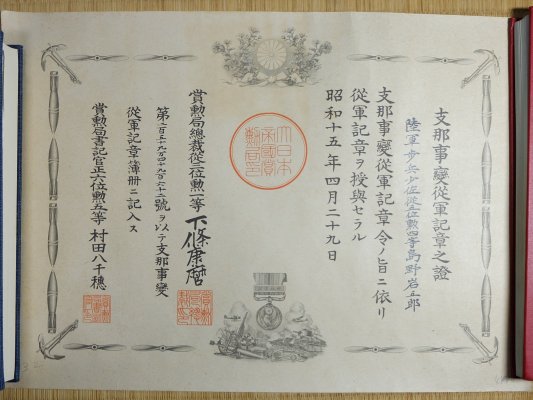 支那事變從軍記章之證
陸軍步兵少佐從六位勲四等高野岩五郎
支那事變從軍記章令ノ旨ニ依リ
從軍記章ヲ授與セラル
昭和十五年四月二十九日
大日本
帝國賞
勲局印
賞勲局總裁從三位勲一等下條康麿
第 號ヲ以テ支那事變
從軍記章簿冊ニ記入ス
賞勲局書記官正六位勲五等村田八千穗